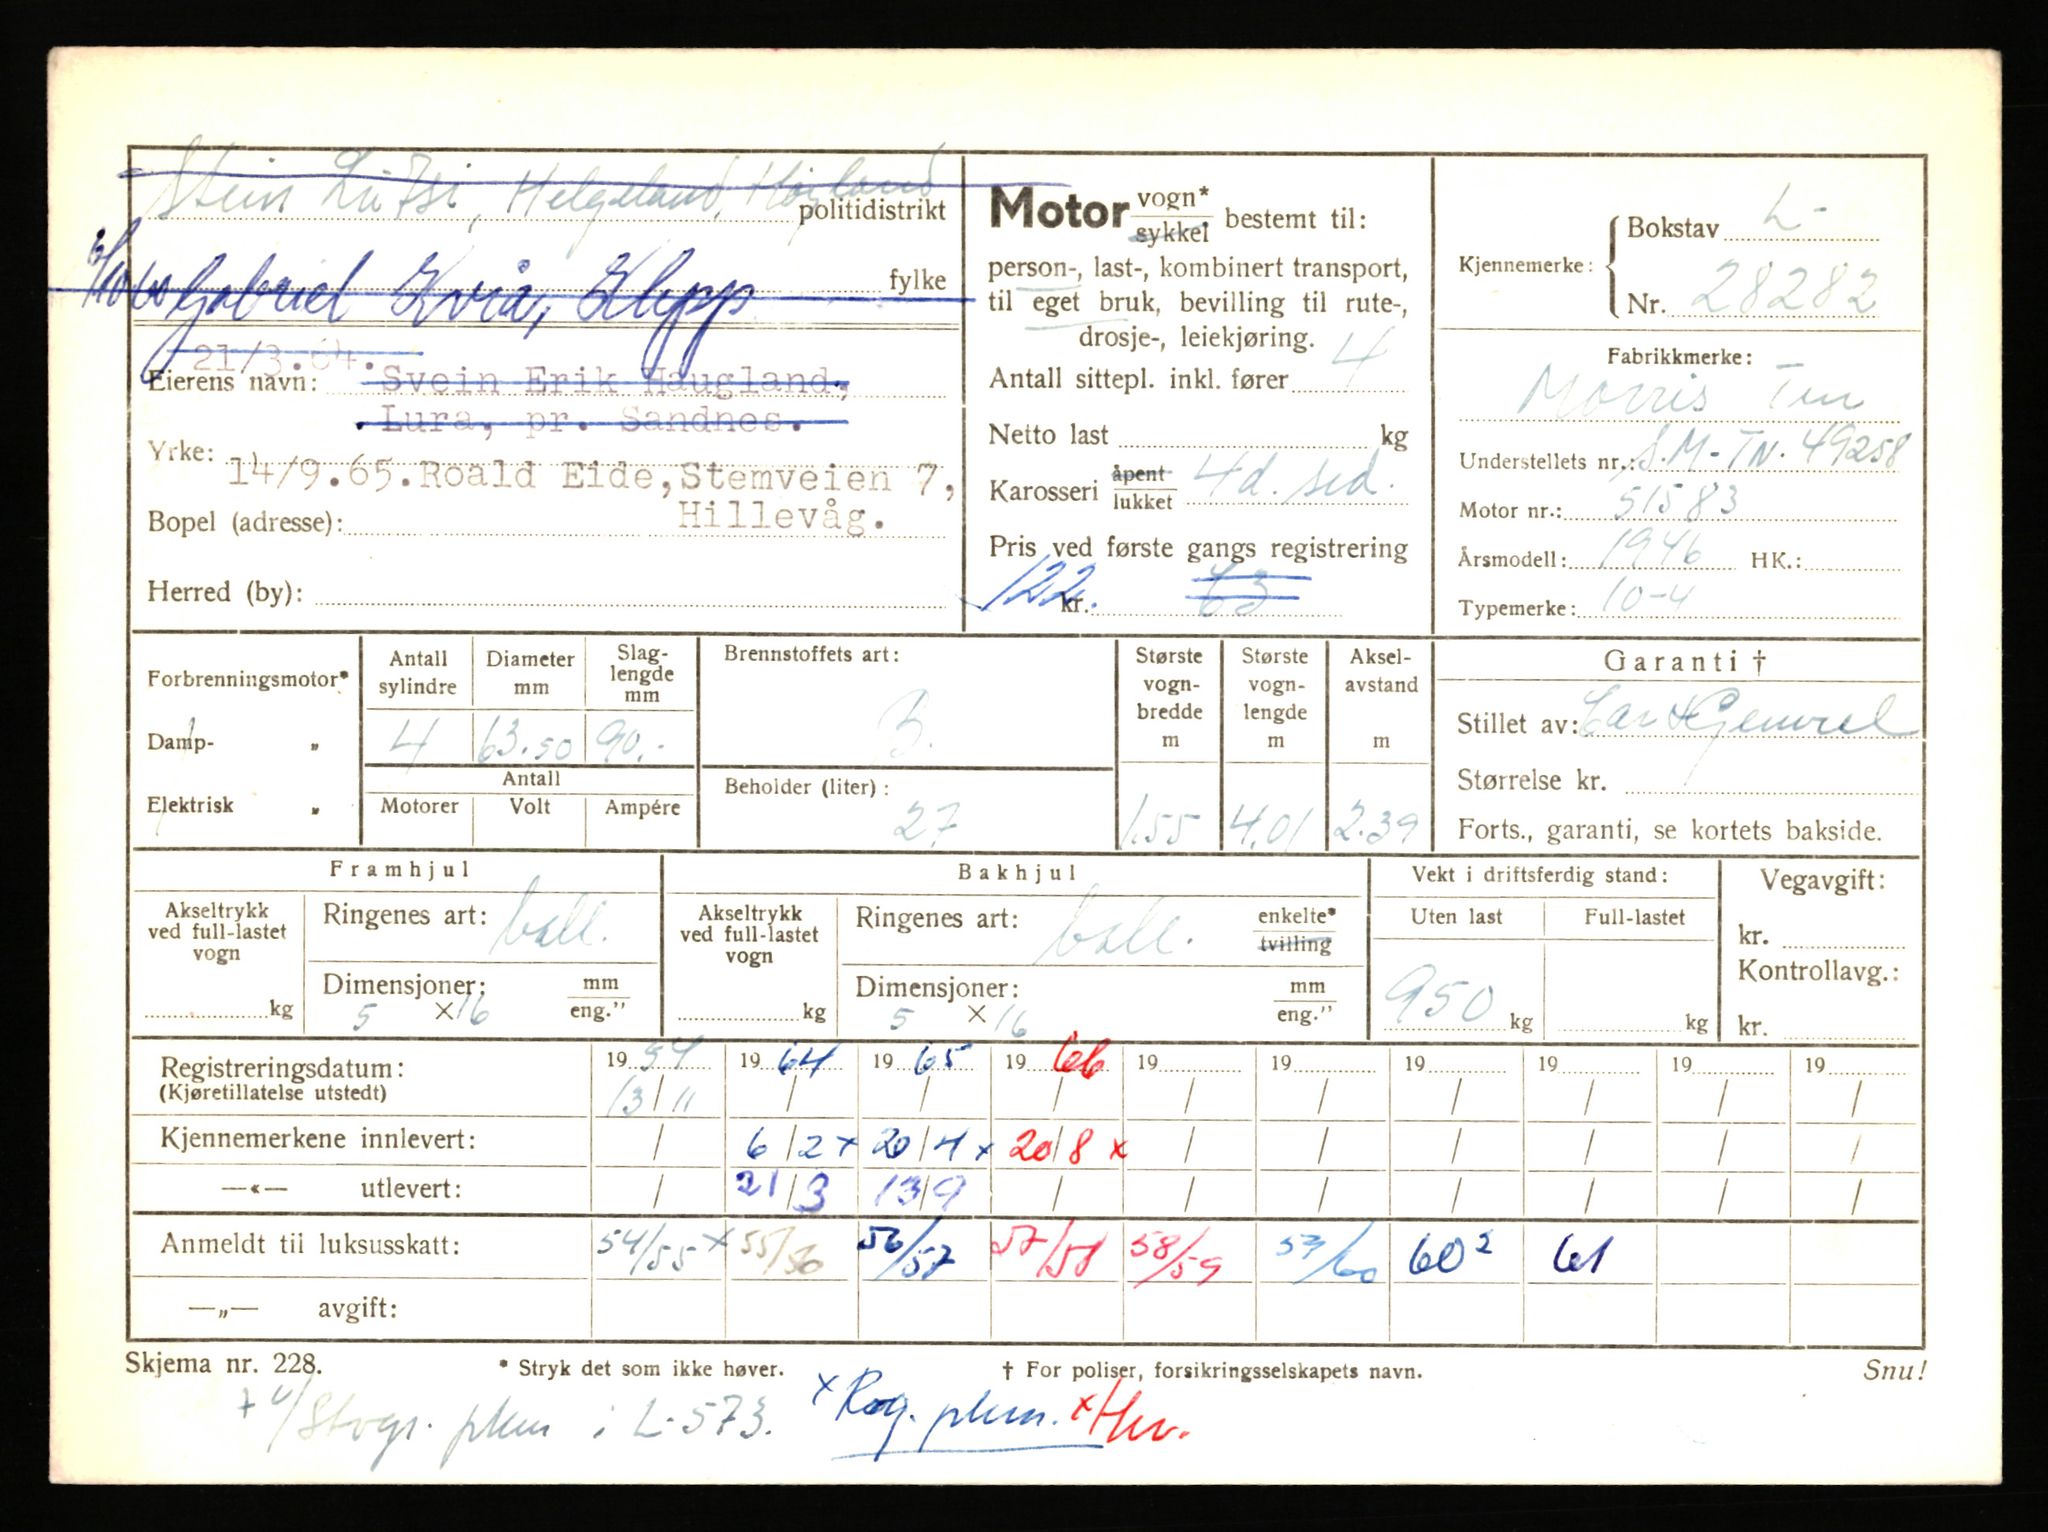 Stein Helgeland, Høyland
politidistrikt
Gabriel Kviå, Klepp
fylke
21/3.64.
Eierens navn: Svein Erik Haugland,
Lura, pr. Sandnes.
Yrke:
14/9.65. Roald Eide, Stemveien 7,
Hillevåg.
Bopel (adresse):
Herred (by):
Motor vogn* sykkel bestemt til:
person-, last-, kombinert transport,
til eget bruk, bevilling til rute-,
drosje-, leiekjøring.
Antall sittepl. inkl. fører 4
Netto last kg
Karosseri åpent lukket 4d. sed.
Pris ved første gangs registrering
122. kr. 63
Kjennemerke: Bokstav L-
Nr. 28282
Fabrikkmerke:
Morris Ten
Understellets nr.: S.M-TN. 49258
Motor nr.: 51583
Årsmodell: 1946 HK.:
Typemerke: 10-4
Forbrenningsmotor*
Damp- „
Elektrisk „
Antall sylindre 4
Diameter mm 63.50
Slaglengde mm 90.-
Antall
Motorer Volt Ampére
Brennstoffets art:
B.
Beholder (liter):
27
Største vognbredde m 1.55
Største vognlengde m 4.01
Akselavstand m 2.39
Garanti †
Stillet av: Car & General
Størrelse kr.
Forts., garanti, se kortets bakside.
Framhjul
Akseltrykk ved full-lastet vogn kg
Ringenes art: ball.
Dimensjoner: mm eng."
5 × 16
Bakhjul
Akseltrykk ved full-lastet vogn kg
Ringenes art: ball. enkelte* tvilling
Dimensjoner: mm eng."
5 × 16
Vekt i driftsferdig stand:
Uten last Full-lastet
950 kg kg
Vegavgift:
kr.
Kontrollavg.:
kr.
Registreringsdatum: 19 54 19 64 19 65 19 66 19 19 19 19 19 19
(Kjøretillatelse utstedt) 13/11 / / / / / / / / /
Kjennemerkene innlevert: / 6/2 x 20/4 x 20/8 x / / / / / /
—«— utlevert: / 21/3 13/9 / / / / / / /
Anmeldt til luksusskatt: 54/55 x 55/56 56/57 57/58 58/59 59/60 60² 61
—„— avgift:
Skjema nr. 228. * Stryk det som ikke høver. † For poliser, forsikringsselskapets navn. Snu!
i L-573. x Rog. x Hv.